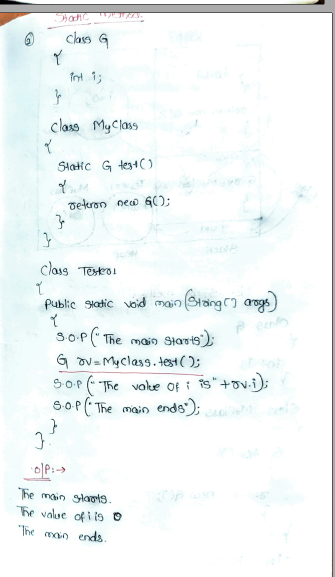 Static
⑥ Class G
{
int i;
}
Class MyClass
{
Static G test()
{
return new G();
}
}
Class Tester1
{
Public static void main(String[] args)
{
S.O.P("The main starts");
G rv=MyClass.test();
S.O.P("The value of i is"+rv.i);
S.O.P("The main ends");
}
}
O/P:→
The main starts.
The value of i is 0
The main ends.